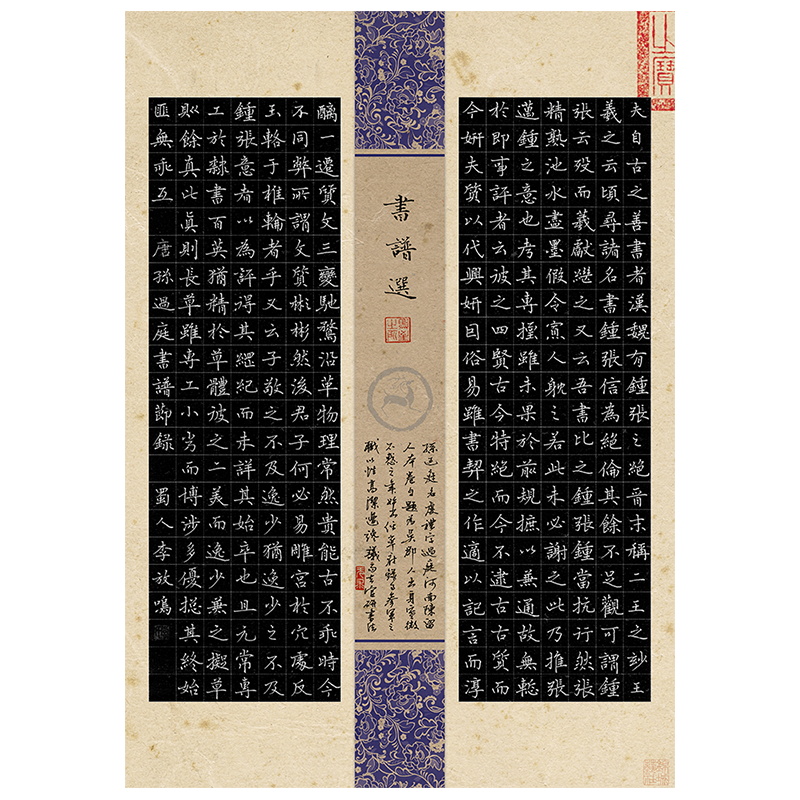 夫自古之善書者漢魏有鍾張之絕晉末稱二王之妙王
羲之云頃尋諸名書鍾張信為絕倫其餘不足觀可謂鍾
張云歿而羲獻繼之又云吾書比之鍾張鍾當抗行然張
精熟池水盡墨假令寡人耽之若此未必謝之此乃推張
邁鍾之意也考其專擅雖未果於前規摭以兼通故無慙
於即事評者云彼之四賢古今特絕而今不逮古古質而
今妍夫質以代興妍因俗易雖書契之作適以記言而淳
書譜選
孫過庭名虔禮字過庭河南陳留
人本卷自題為吳郡人出身寒微
不惑之年始出任率府錄事參軍之
職以性高潔遭讒議而去官研書法
醨一遷質文三變馳騖沿革物理常然貴能古不乖時今
不同弊所謂文質彬彬然後君子何必易雕宮於穴處反
玉輅于椎輪者乎又云子敬之不及逸少猶逸少之不及
鍾張意者以為評得其綱紀而未詳其始卒也且元常專
工於隸書百英猶精於草體彼之二美而逸少兼之擬草
則餘真比真則長草雖專工小劣而博涉多優總其終始
匪無乖互 唐孫過庭書譜節錄 蜀人李放鳴
之寶